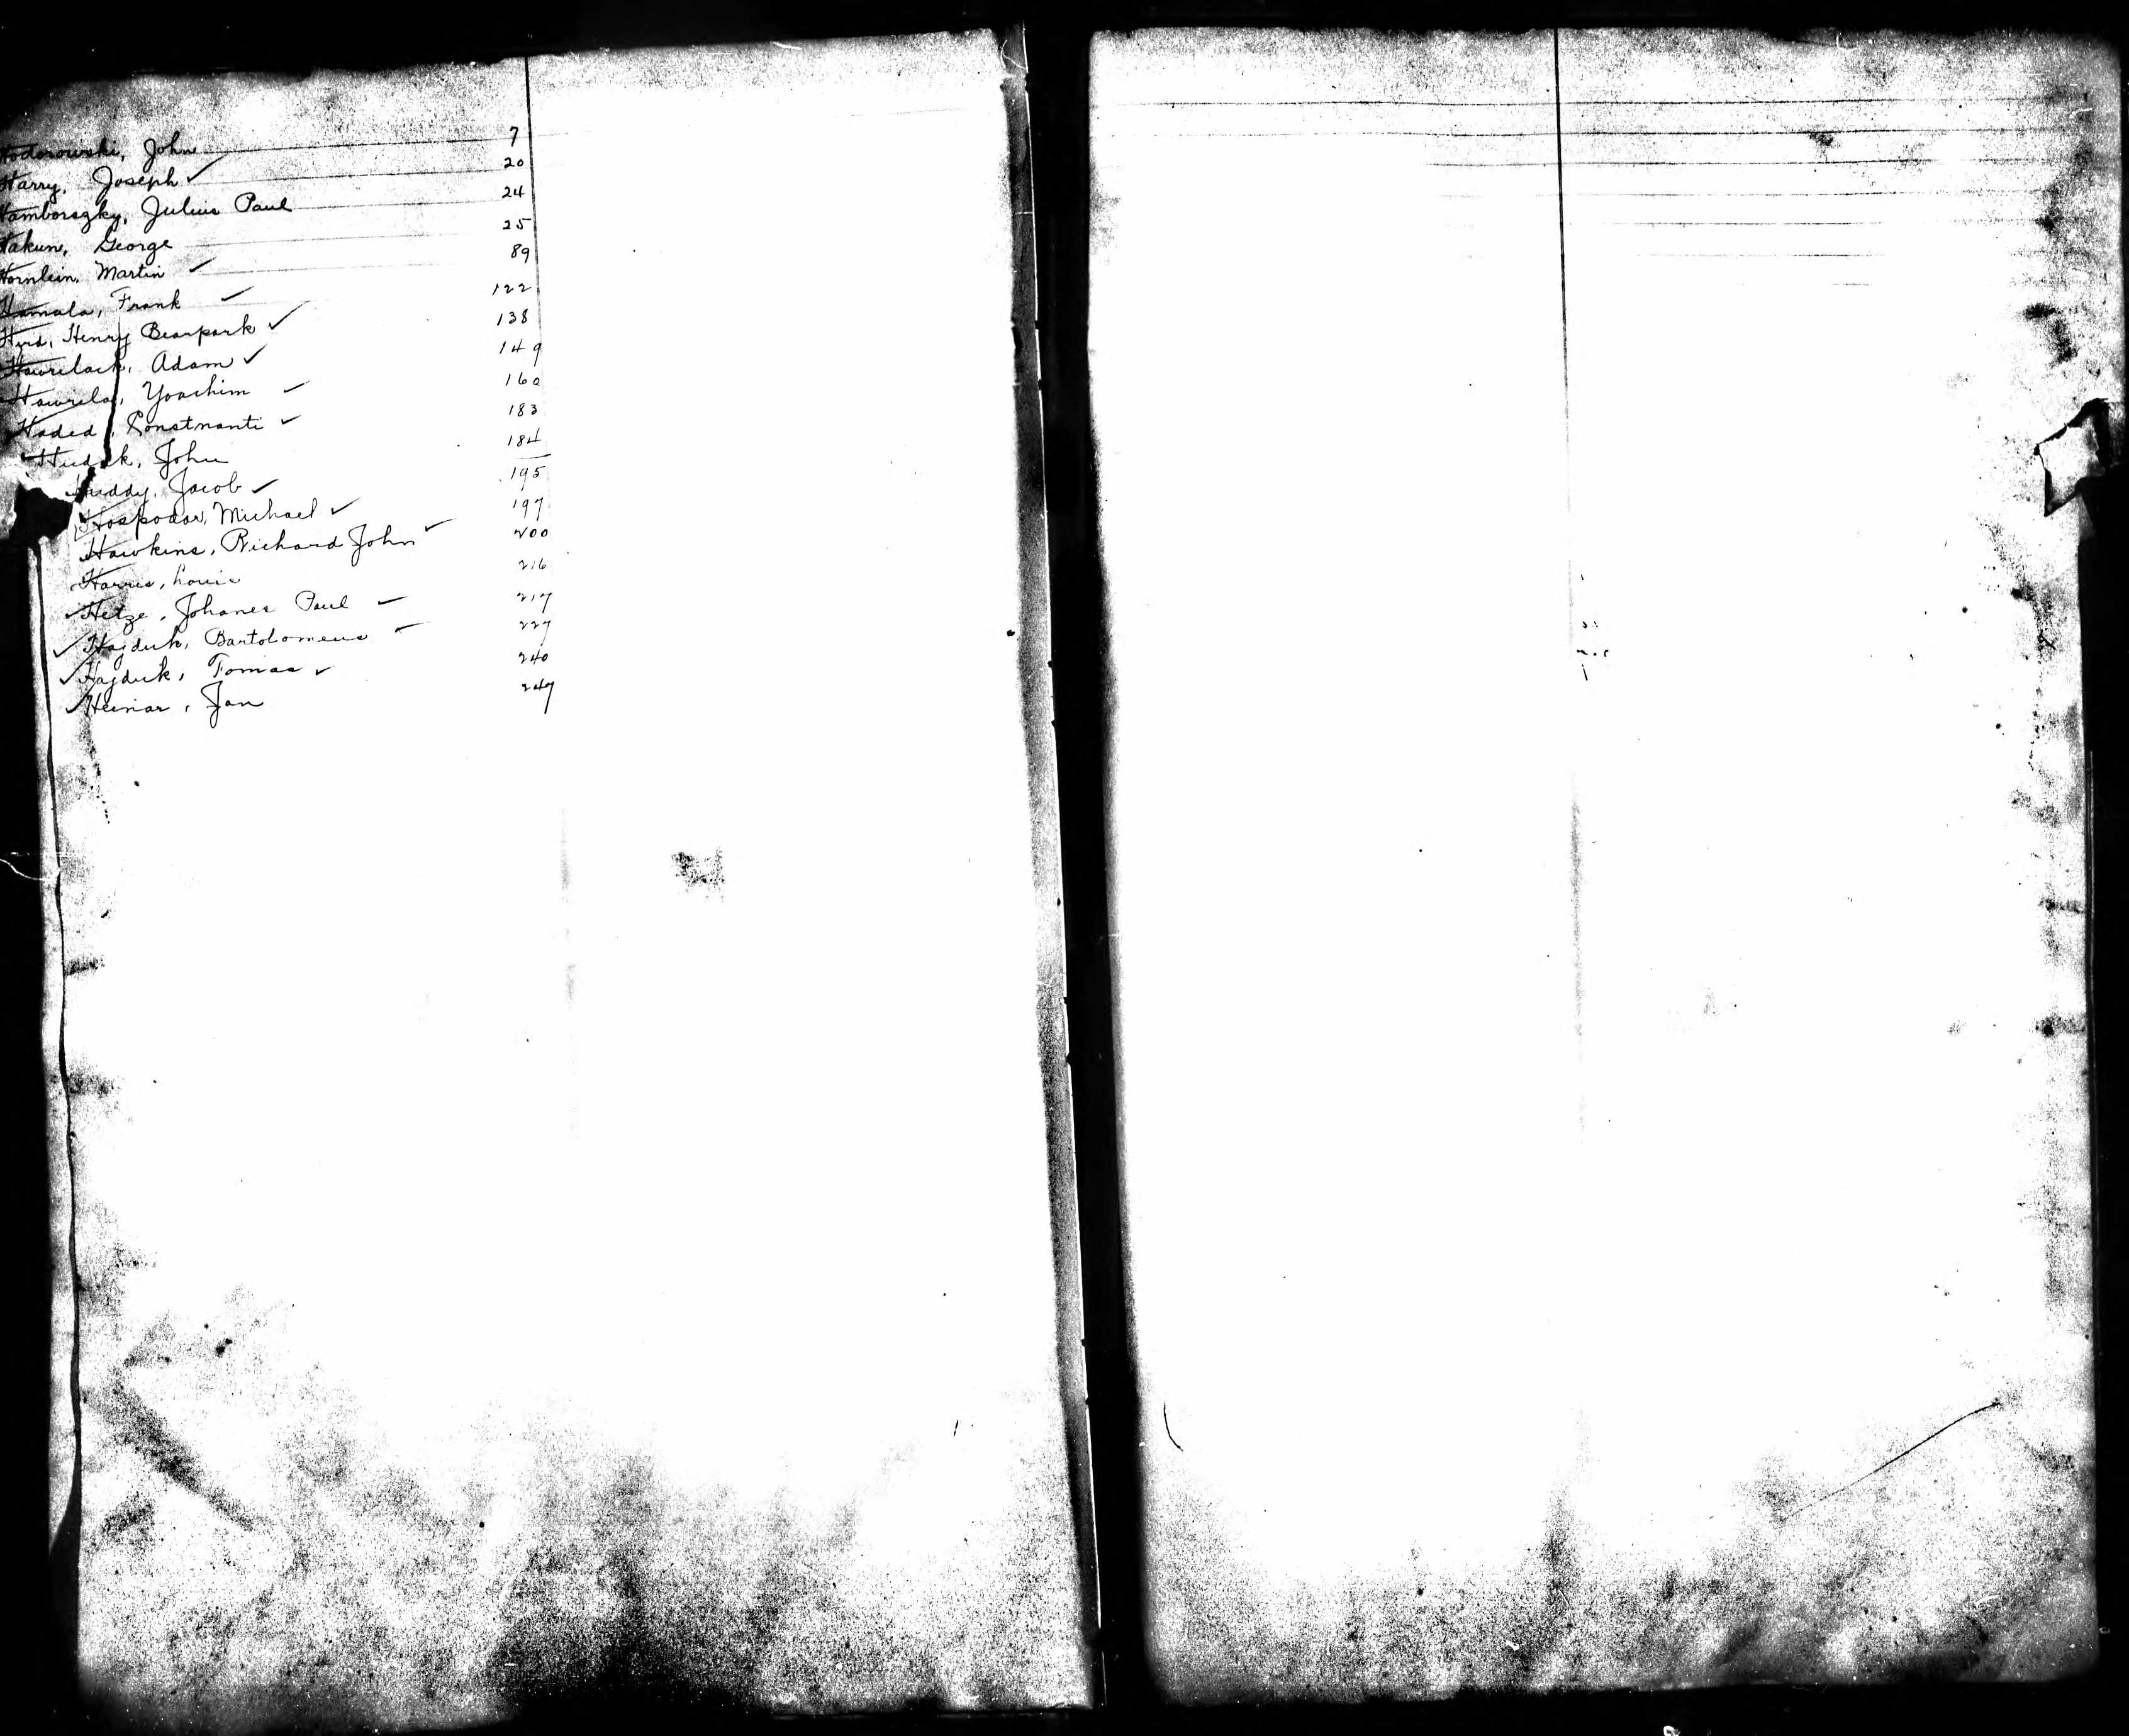 Hodorowski, John 7
Harry, Joseph ✓ 20
Hamborszky, Julius Paul 24
Hakun, George 25
Hornlein, Martin ✓ 89
Hamala, Frank ✓ 122
Hird, Henry Bearpark ✓ 138
Hawrelack, Adam ✓ 149
Hawrela, Yoachim ✓ 160
Haded, Constnanti ✓ 183
Hudak, John 184
Huddy, Jacob ✓ 195
Hospodar, Michael ✓ 197
Hawkins, Richard John ✓ 200
Harris, Louis 216
✓ Hetze, Johanes Paul ✓ 217
✓ Hajduk, Bartolomeus ✓ 227
✓ Hajduk, Tomas ✓ 240
✓ Jan 247